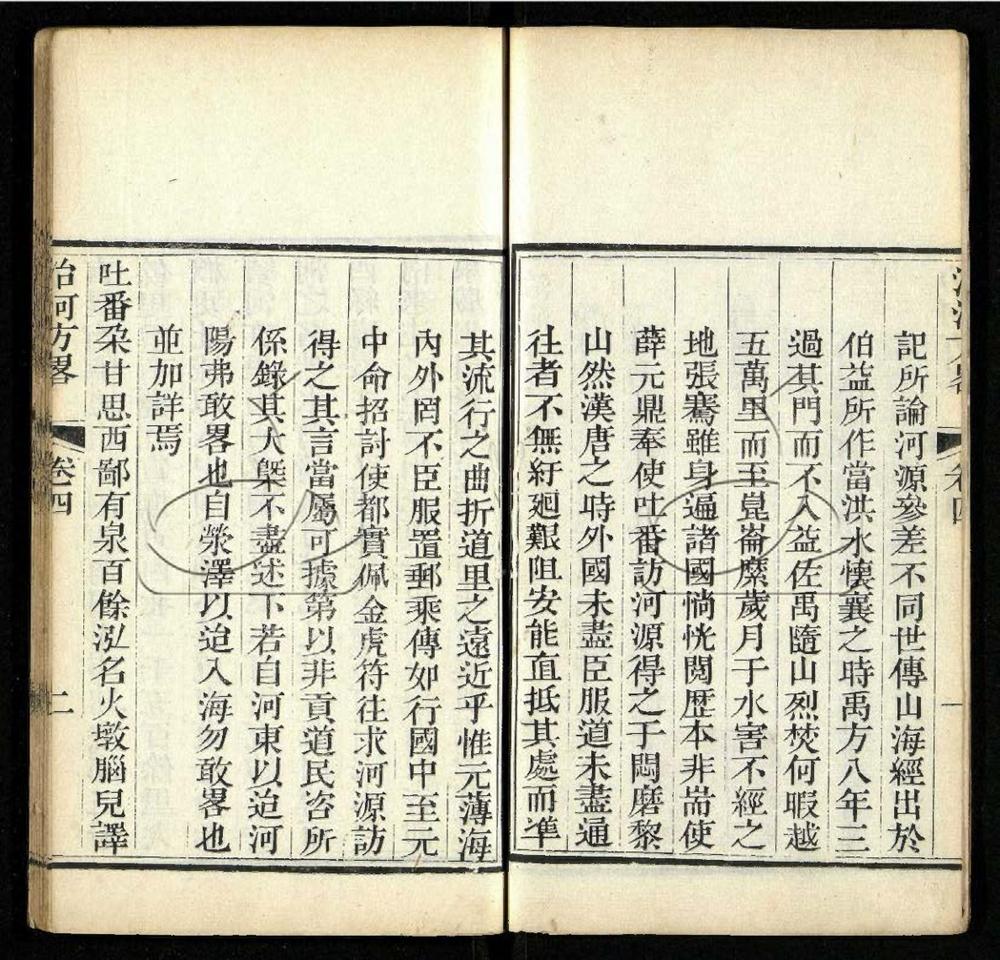 記所論河源參差不同世傳山海經出於
伯益所作當洪水懷襄之時禹方八年三
過其門而不入益佐禹隨山烈焚何暇越
五萬里而至崑崙縻歲月于水害不經之
地張騫雖身遍諸國惝恍閱歷本非耑使
薛元鼎奉使吐番訪河源得之于悶磨黎
山然漢唐之時外國未盡臣服道未盡通
往者不無紆廻艱阻安能直抵其處而準
其流行之曲折道里之遠近乎惟元薄海
內外罔不臣服置郵乘傳如行國中至元
中命招討使都實佩金虎符往求河源訪
得之其言當屬可據第以非貢道民咨所
係錄其大槩不盡述下若自河東以迨河
陽弗敢畧也自滎澤以迨入海勿敢畧也
並加詳焉
吐番朶甘思西鄙有泉百餘泓名火墩腦兒譯
治河方畧
卷四
二